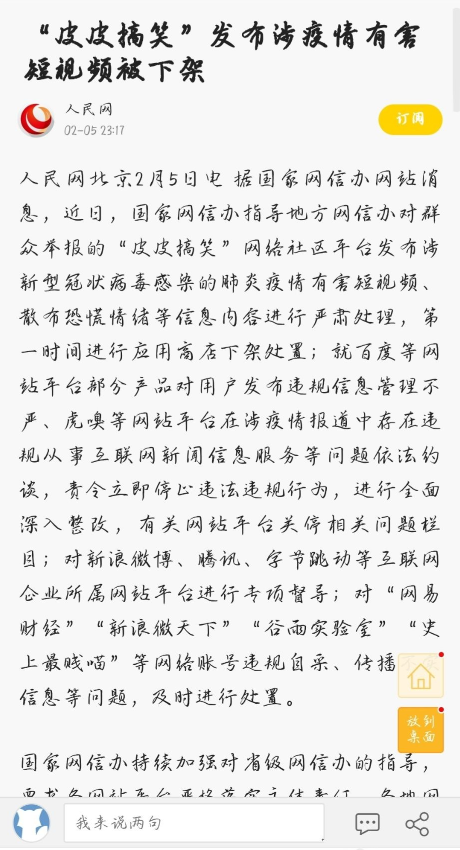 “皮皮搞笑”发布涉疫情有害
短视频被下架
人民网
02-05 23:17
订阅
人民网北京2月5日电 据国家网信办网站消
息，近日，国家网信办指导地方网信办对群
众举报的“皮皮搞笑”网络社区平台发布涉
新型冠状病毒感染的肺炎疫情有害短视频、
散布恐慌情绪等信息内容进行严肃处理，第
一时间进行应用商店下架处置；就百度等网
站平台部分产品对用户发布违规信息管理不
严、虎嗅等网站平台在涉疫情报道中存在违
规从事互联网新闻信息服务等问题依法约
谈，责令立即停止违法违规行为，进行全面
深入整改，有关网站平台关停相关问题栏
目；对新浪微博、腾讯、字节跳动等互联网
企业所属网站平台进行专项督导；对“网易
财经”“新浪微天下”“谷雨实验室”“史
上最贱喵”等网络账号违规自采、传播
信息等问题，及时进行处置。
放到
桌面
国家网信办持续加强对省级网信办的指导，
我来说两句